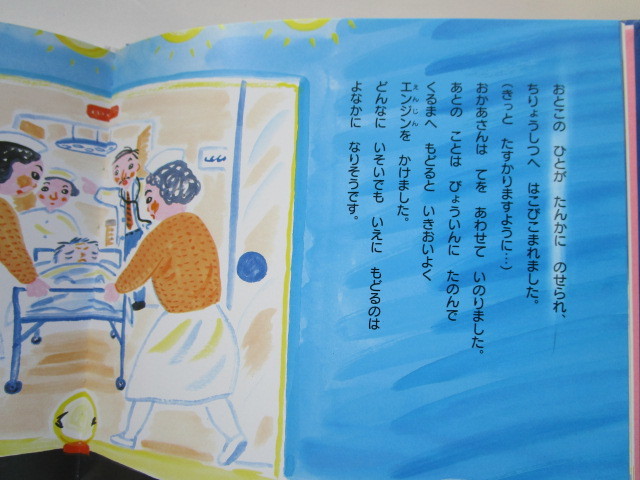 おとこの ひとが たんかに のせられ、
ちりょうしつへ はこびこまれました。
(きっと たすかりますように…)
おかあさんは てを あわせて いのりました。
あとの ことは びょういんに たのんで
くるまへ もどると いきおいよく
エンジンを かけました。
えんじん
どんなに いそいでも いえに もどるのは
よなかに なりそうです。